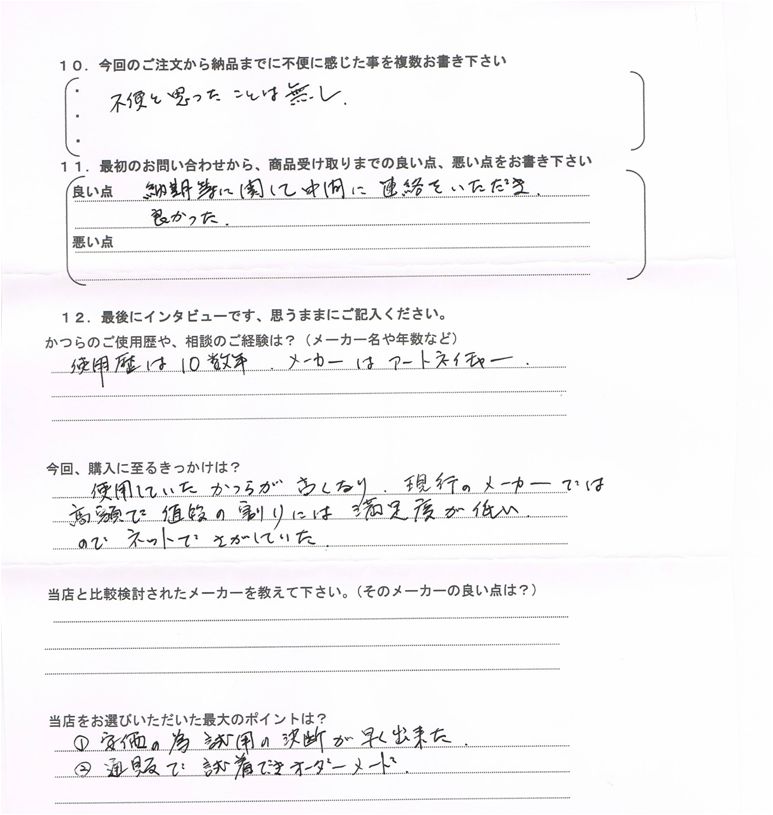 １０．今回のご注文から納品までに不便に感じた事を複数お書き下さい
・ 不便と思ったことは無し.
・
・
１１．最初のお問い合わせから、商品受け取りまでの良い点、悪い点をお書き下さい
良い点 納期等に関して中間に連絡をいただき.
良かった.
悪い点
１２．最後にインタビューです、思うままにご記入ください。
かつらのご使用歴や、相談のご経験は？（メーカー名や年数など）
使用歴は10数年. メーカーはアートネイチャー.
今回、購入に至るきっかけは？
使用していたかつらが古くなり. 現行のメーカーでは
高額で値段の割りには満足度が低い.
のでネットでさがしていた.
当店と比較検討されたメーカーを教えて下さい。（そのメーカーの良い点は？）
当店をお選びいただいた最大のポイントは？
① 安価の為試用の決断が早く出来た.
② 通販で試着できオーダーメード.